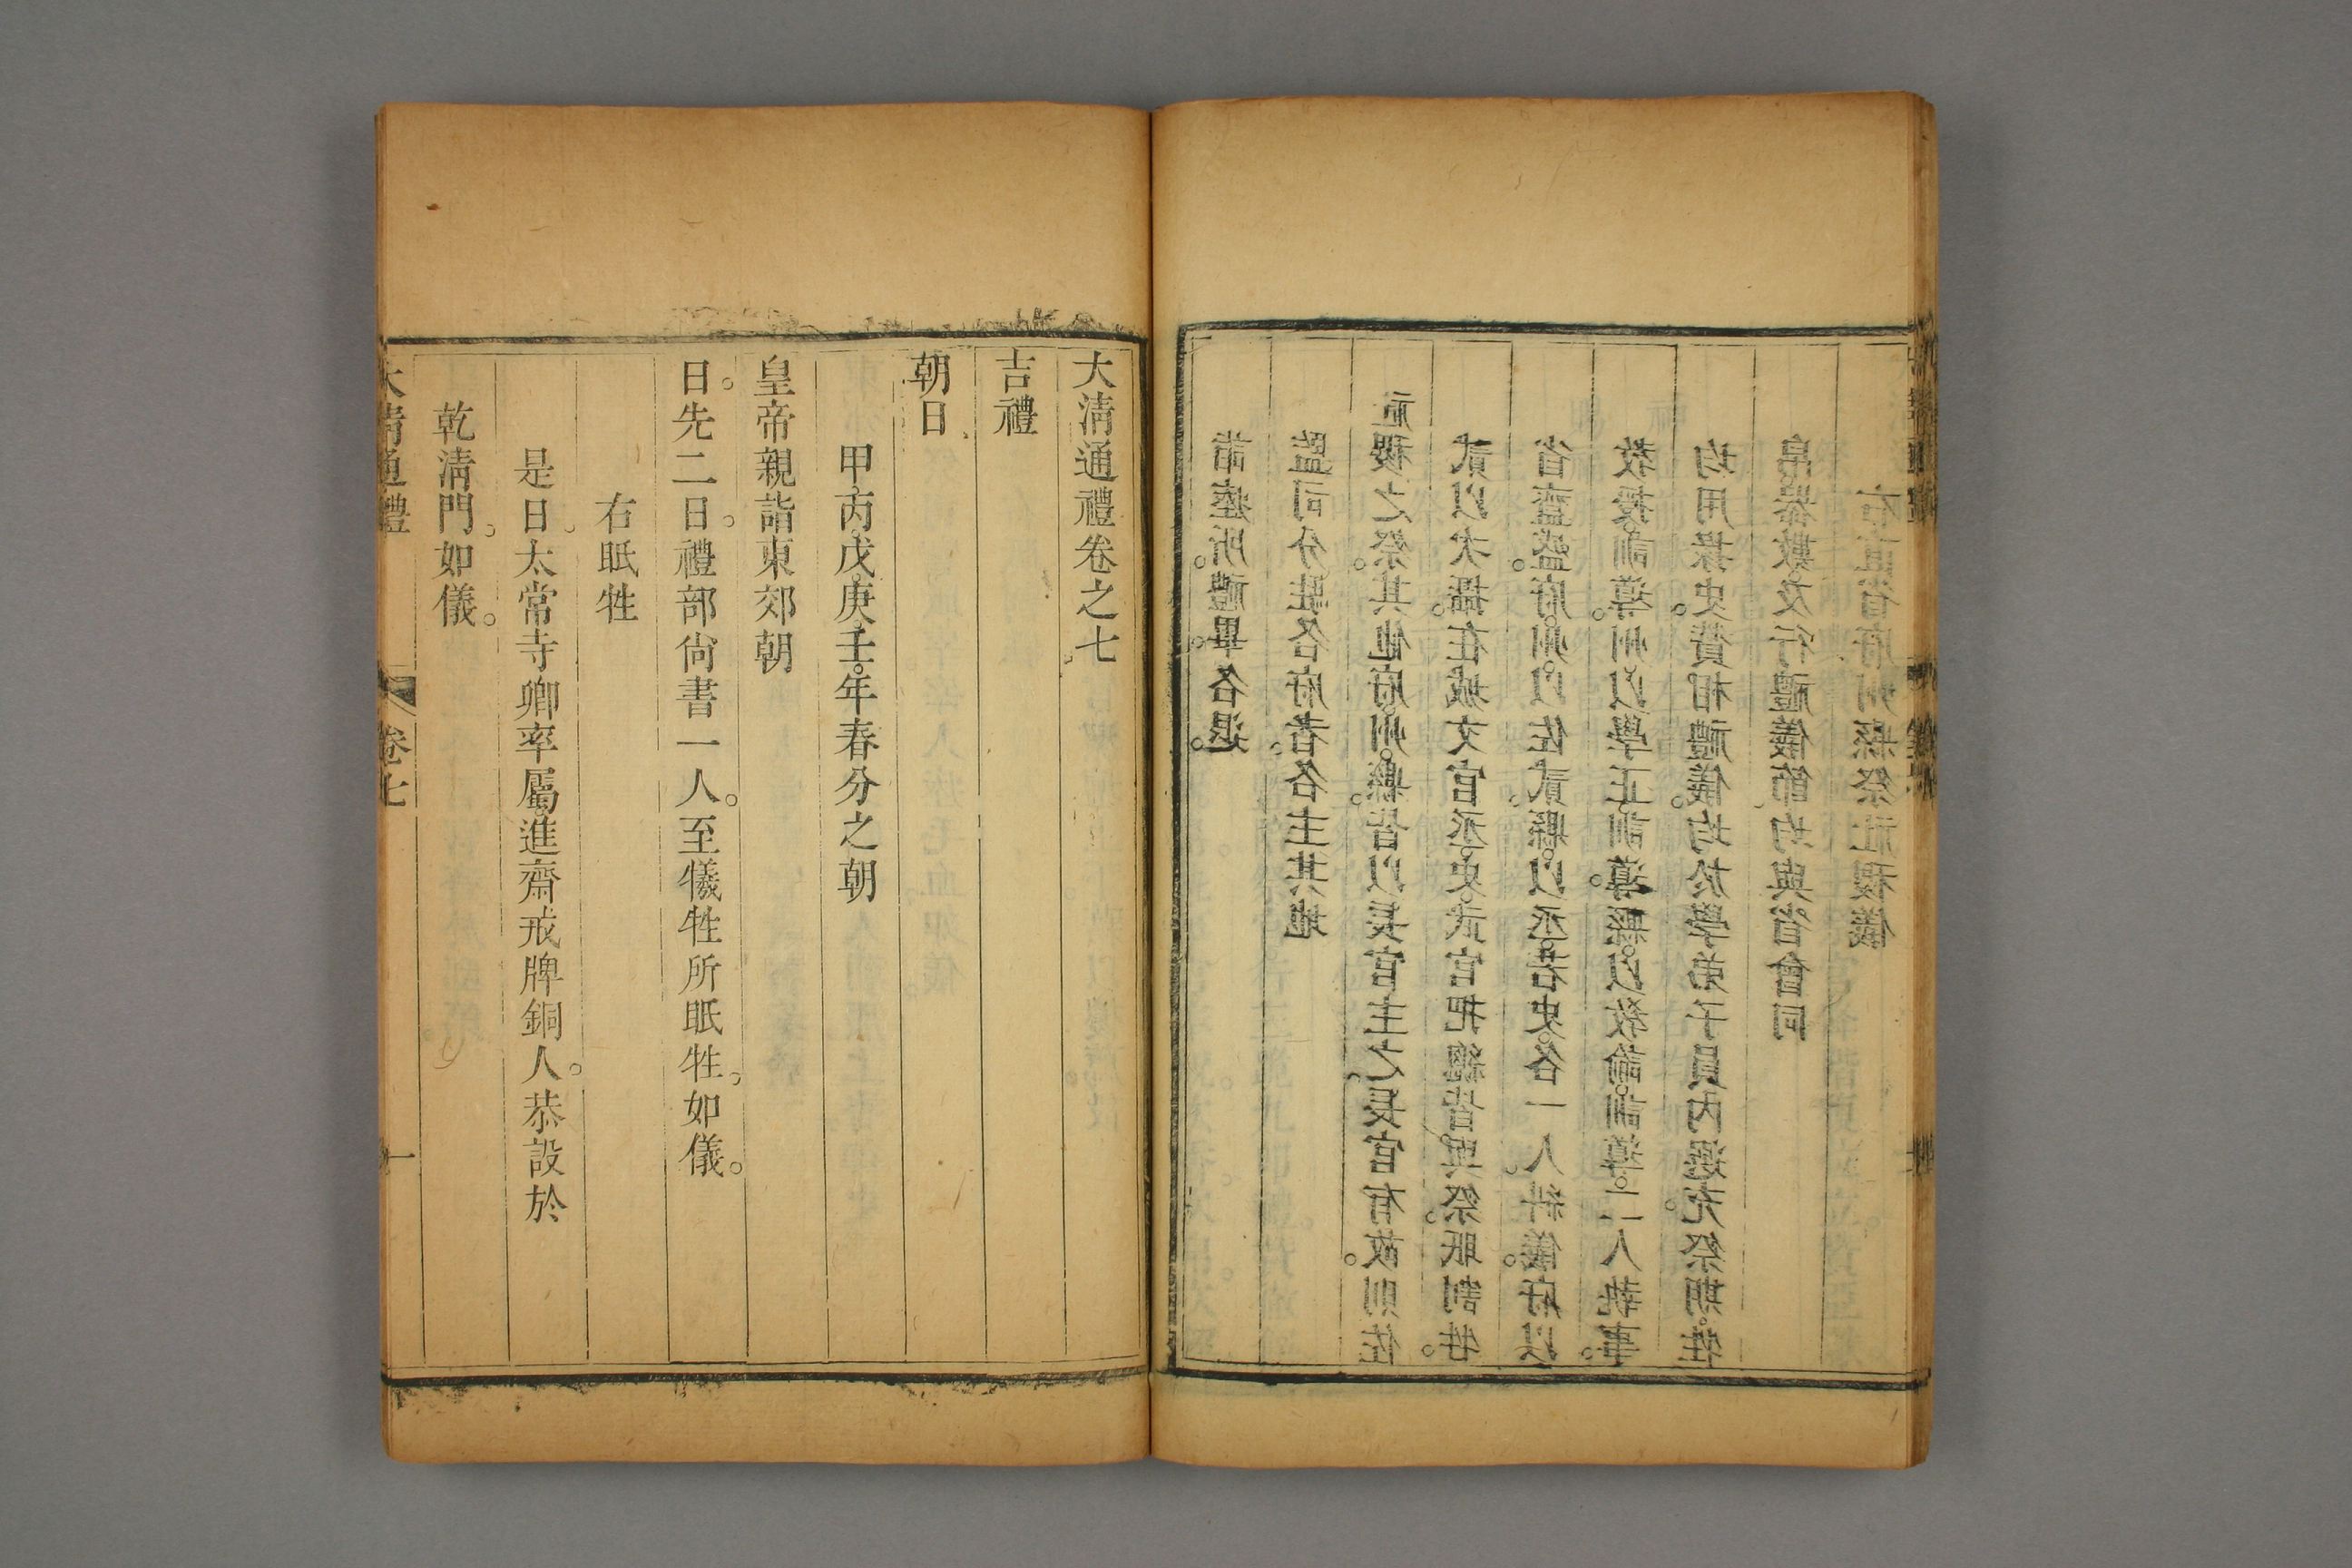 詣瘞所。禮畢。各退。
監司分駐各府者。各主其地
社稷之祭。其他府。州。縣。皆以長官主之。長官有故。則佐
貳以次攝。在城文官丞。史。武官把總。皆與祭。眡割牲。
省齍盛。府。州。以佐貳。縣。以丞。若史。各一人。糾儀。府以
教授。訓導。州以學正。訓導。縣。以教諭。訓導。二人。執事。
均用掾史。贊相禮儀。均於學弟子員內選充。祭期。牲
帛。器數。及行禮儀節。均與省會同
右直省府州縣祭社稷儀
大清通禮卷之七
吉禮
朝日
甲。丙。戊。庚。壬。年春分之朝
皇帝親詣東郊朝
日。先二日。禮部尚書一人。至犧牲所眡牲。如儀。
右眡牲
是日。太常寺卿率屬。進齋戒牌銅人。恭設於
乾清門。如儀。
大清通禮 卷七 一